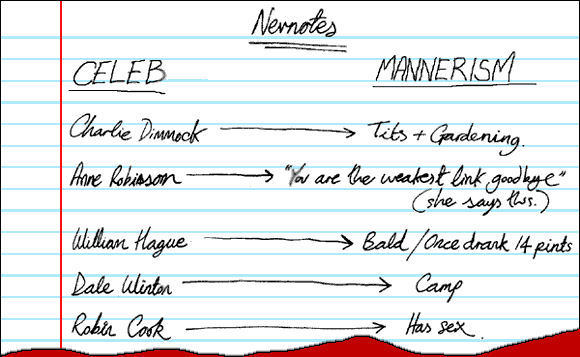 Nevnotes
CELEB MANNERISM
Charlie Dimmock Tits + Gardening.
Anne Robinson "You are the weakest link goodbye"
(she says this.)
William Hague Bald / Once drank 14 pints
Dale Winton Camp
Robin Cook Has sex.